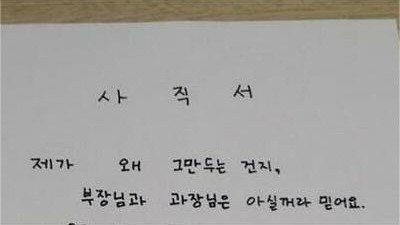 사 직 서
제가 왜 그만두는 건지,
부장님과 과장님은 아실꺼라 믿어요.